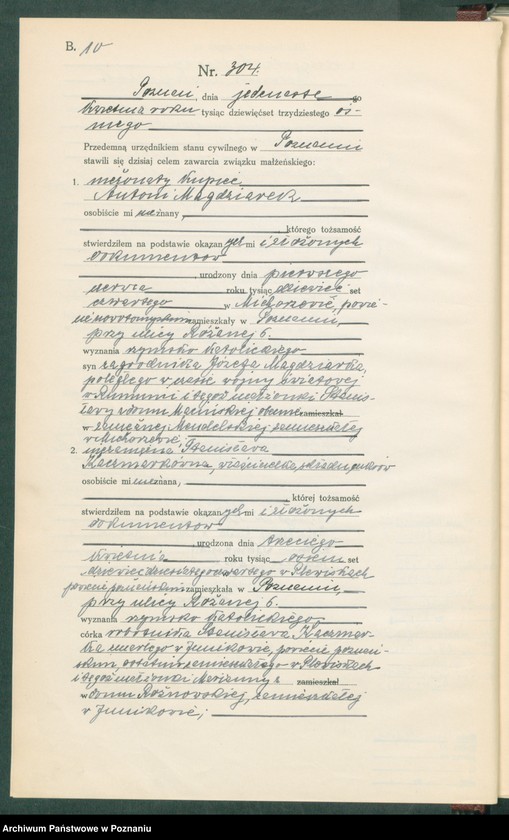 B. 10
Nr. 304.
Poznań, dnia jedenaste go
kwietnia roku tysiąc dziewięćset trzydziestego ós-
mego
Przedemną urzędnikiem stanu cywilnego w Poznaniu
stawili się dzisiaj celem zawarcia związku małżeńskiego:
1. nieżonaty kupiec
Antoni Magdziarek
osobiście mi nieznany,
, którego tożsamość
stwierdziłem na podstawie okazanych mi i złożonych
dokumentów
, urodzony dnia pierwszego
czerwca roku tysiąc dziewięć set
czwartego w Michorzewie, powie-
cie nowotomyskim zamieszkały w Poznaniu,
przy ulicy Różanej 6.
wyznania rzymsko katolickiego
syn zagrodnika Józefa Magdziarka,
poległego w czasie wojny światowej
w Rumunii i tegoż małżonki Stanis-
ławy z domu zamieszkał
w zamieszkałej
w Michorzewie;
2. niezamężna Stanisława
Kaczmarkówna,
osobiście mi nieznana,
, której tożsamość
stwierdziłem na podstawie okazanych mi i złożonych
dokumentów
, urodzona dnia trzeciego
kwietnia roku tysiąc osiem set
dziewięćdziesiątego czwartego w Plewiskach
powiecie poznańskim zamieszkała w Poznaniu,
przy ulicy Różanej 6.
wyznania rzymsko katolickiego,
córka robotnika Stanisława Kaczmar-
ka zmarłego w Junikowie, powiecie poznań-
skim, ostatnio zamieszkałego w Plewiskach
i tegoż małżonki Marianny z zamieszkał
w domu Rożnowskiej, zamieszkałej
w Junikowie;
Archiwum Państwowe w Poznaniu